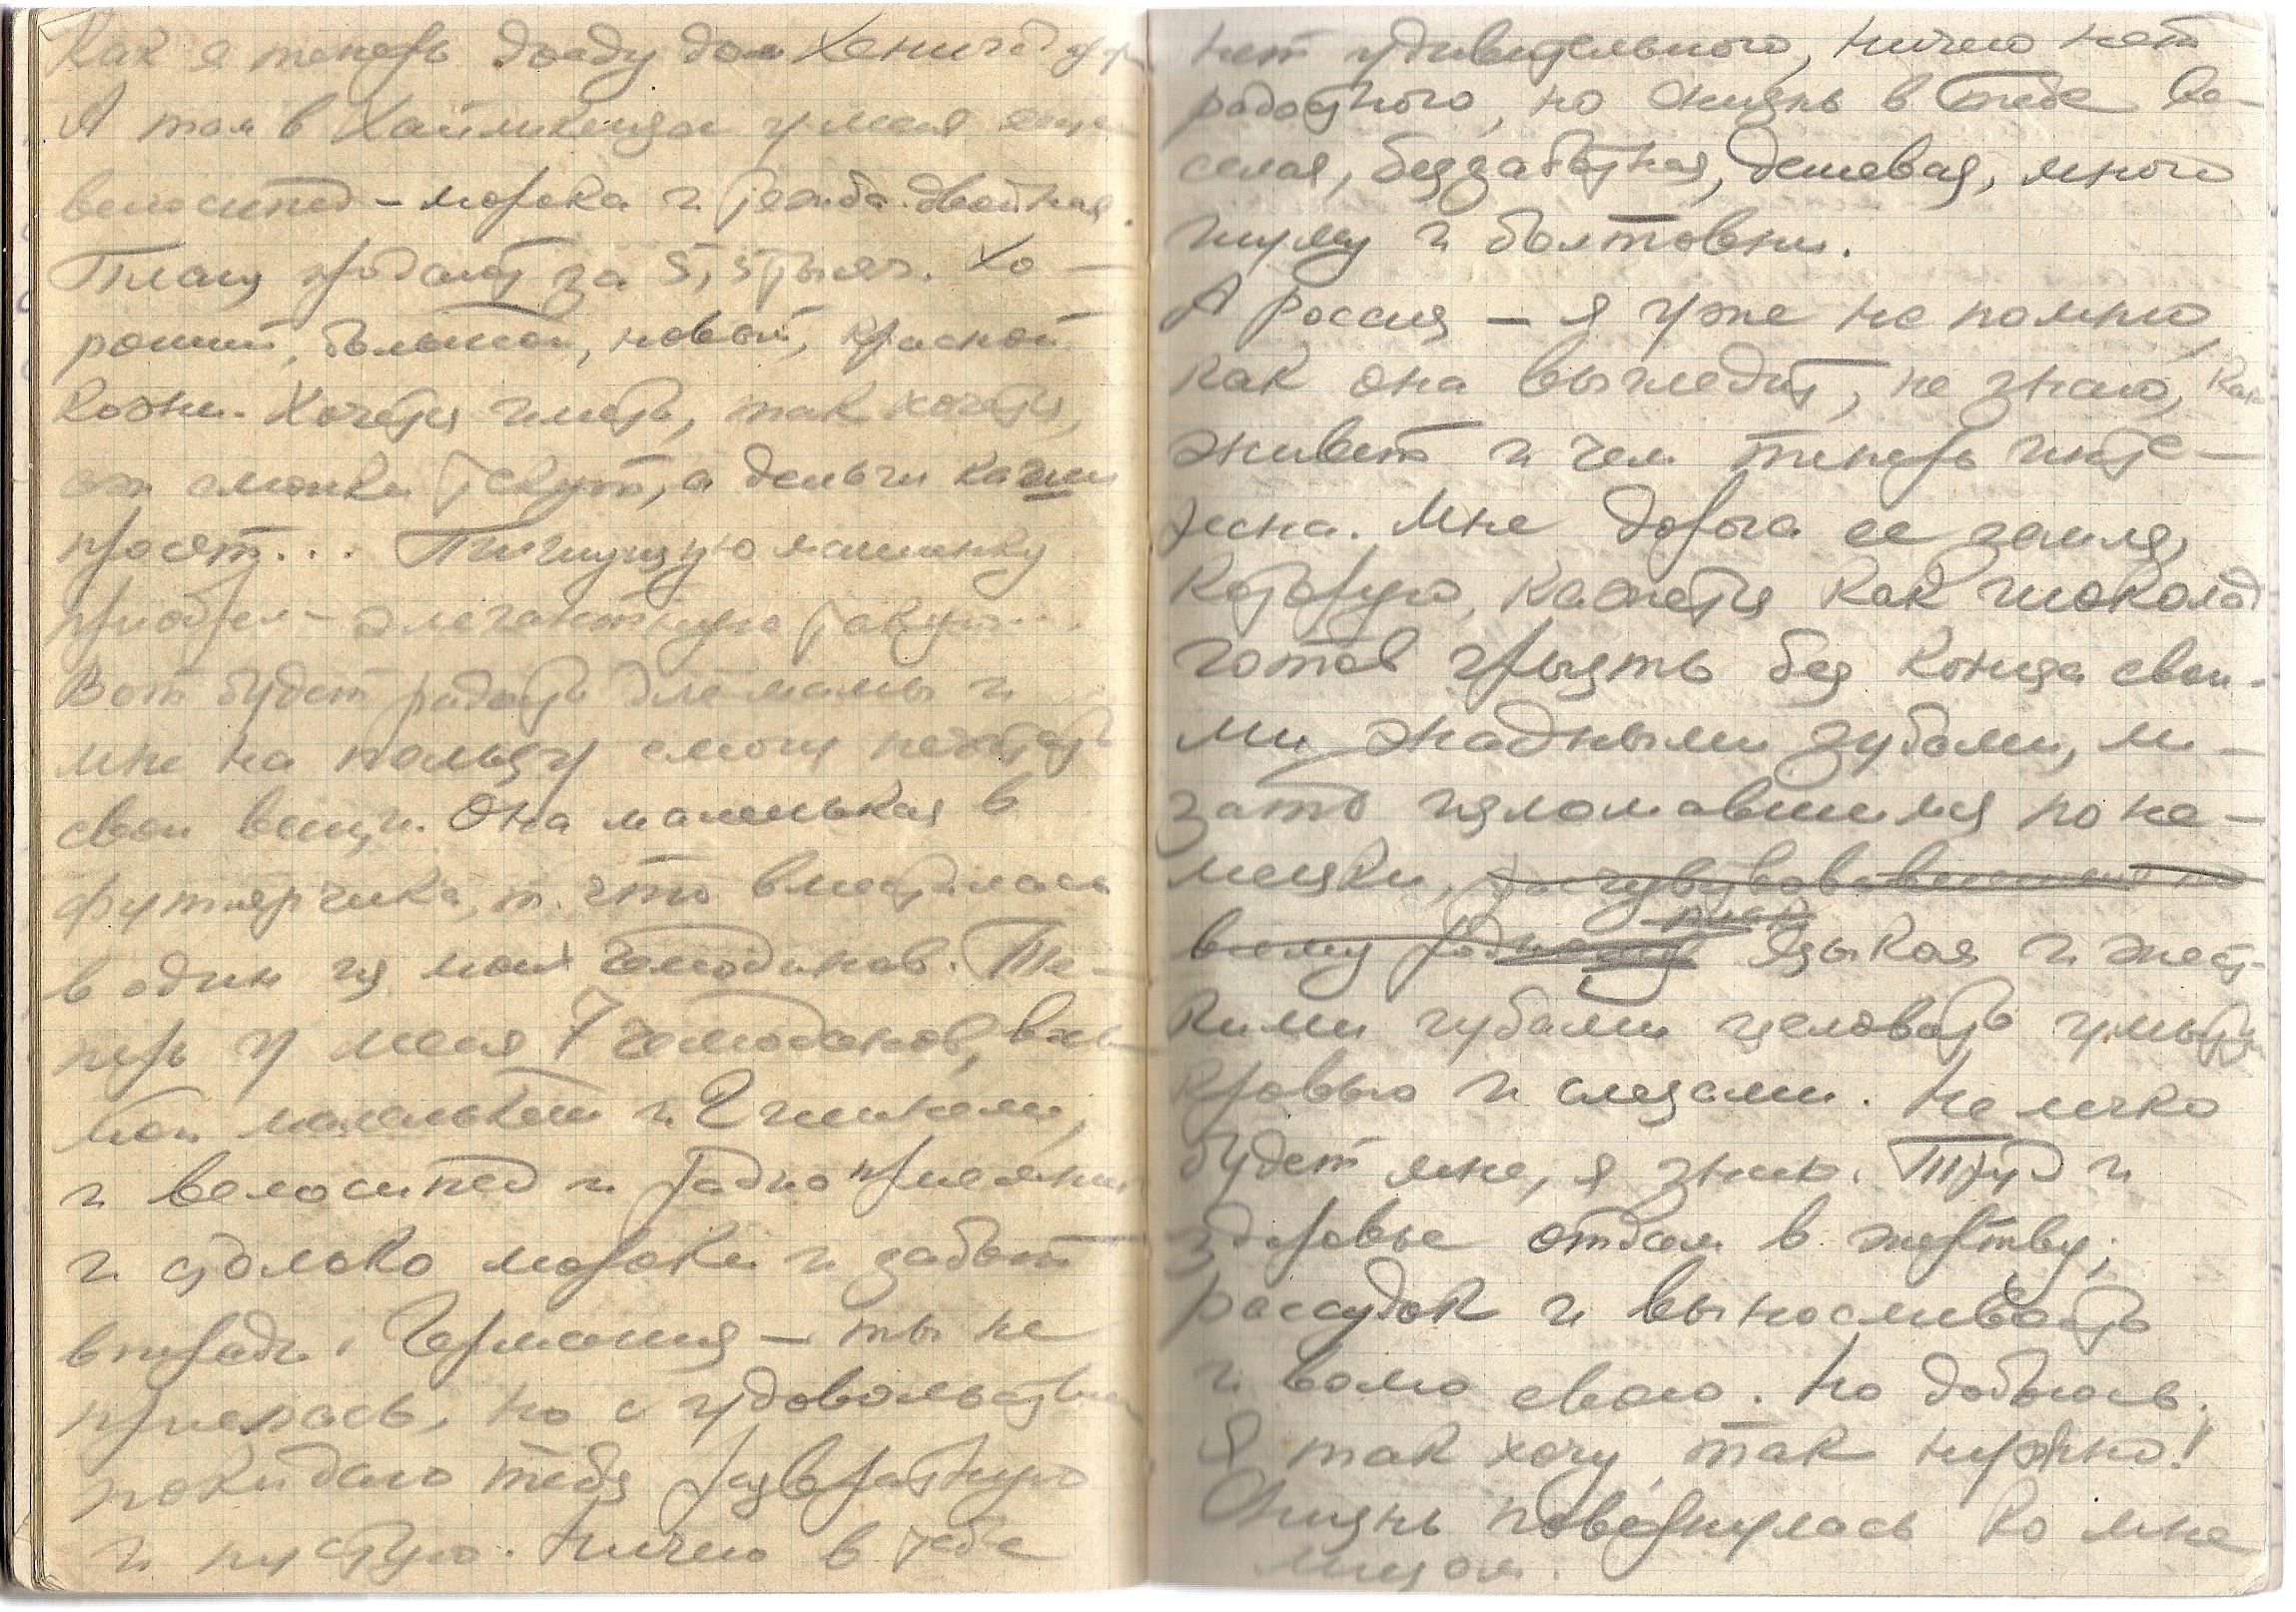 Как я теперь доеду до
А там в Хаймкенцах у меня еще
велосипед – морока и двойная.
Плащ продают за 5,5 тысяч. Хо–
роший, большой, новый, красной
кожи. Хочется иметь, так хочется,
аж слюнки текут, а деньги каши
просят... Пишущую машинку
приобрел – элегантную такую...
Вот будет радость для мамы и
мне на пользу смогу печатать
свои вещи. Она маленькая в
футлярчике, т. что вместилась
в один из моих чемоданов. Те–
перь у меня 7 чемоданов,
мой маленький и 2 шинели,
и велосипед и радиоприемник
и столько мороки и забот
впереди. Германия – ты не
приелась, но с удовольствием
покидаю тебя развратную
и пустую. Ничего в тебе
нет удивительного, ничего нет
радостного, но жизнь в тебе ве–
селая, беззаботная, дешевая, много
шуму и болтовни.
А Россия – я уже не помню,
как она выглядит, не знаю, как
живет и чем теперь инте–
ресна. Мне дорога ее земля,
которую, кажется как шоколад
готов грызть без конца свои–
ми жадными зубами,
изломавшимся по не–
мецки, языком и жест–
кими губами целовать умыться
кровью и слезами. Не легко
будет мне, я знаю. Труд и
здоровье отдам в жертву;
рассудок и выносливость
и волю свою. Но добьюсь.
Я так хочу, так нужно!
Жизнь повернулась ко мне
лицом.